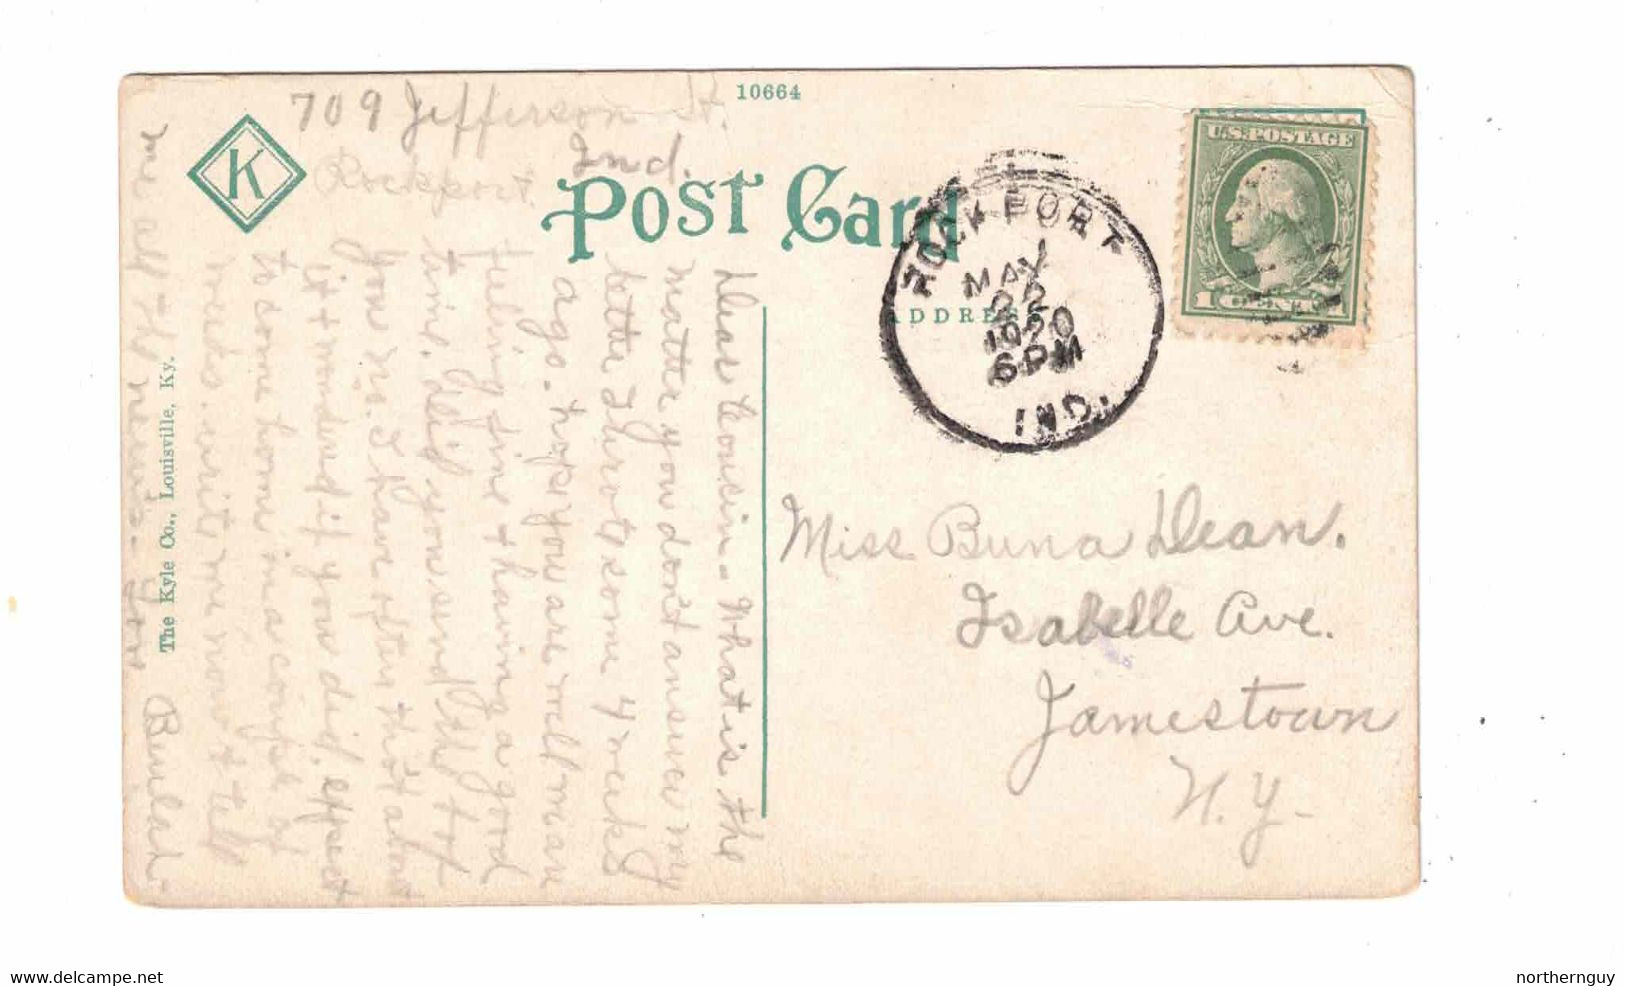 10664
709 Jefferson St.
Rockport Ind.
K
POST CARD
ADDRESS
ROCKPORT
MAY
22
1920
6 PM
IND.
U.S. POSTAGE
1 CENT 1
Dear Cousin - What is the
matter you don't answer my
letter I wrote some 4 weeks
ago. hope you are well I'm an
feeling fine & having a good
time. did you send the
you no. I have often thot about
it & wondered if you did. expect
to come home in a couple of
weeks. write me now & tell
me all the news - Your
Beulah -
The Kyle Co., Louisville, Ky.
Miss Buna Dean.
Isabelle Ave.
Jamestown
N. Y.
www.delcampe.net
northernguy